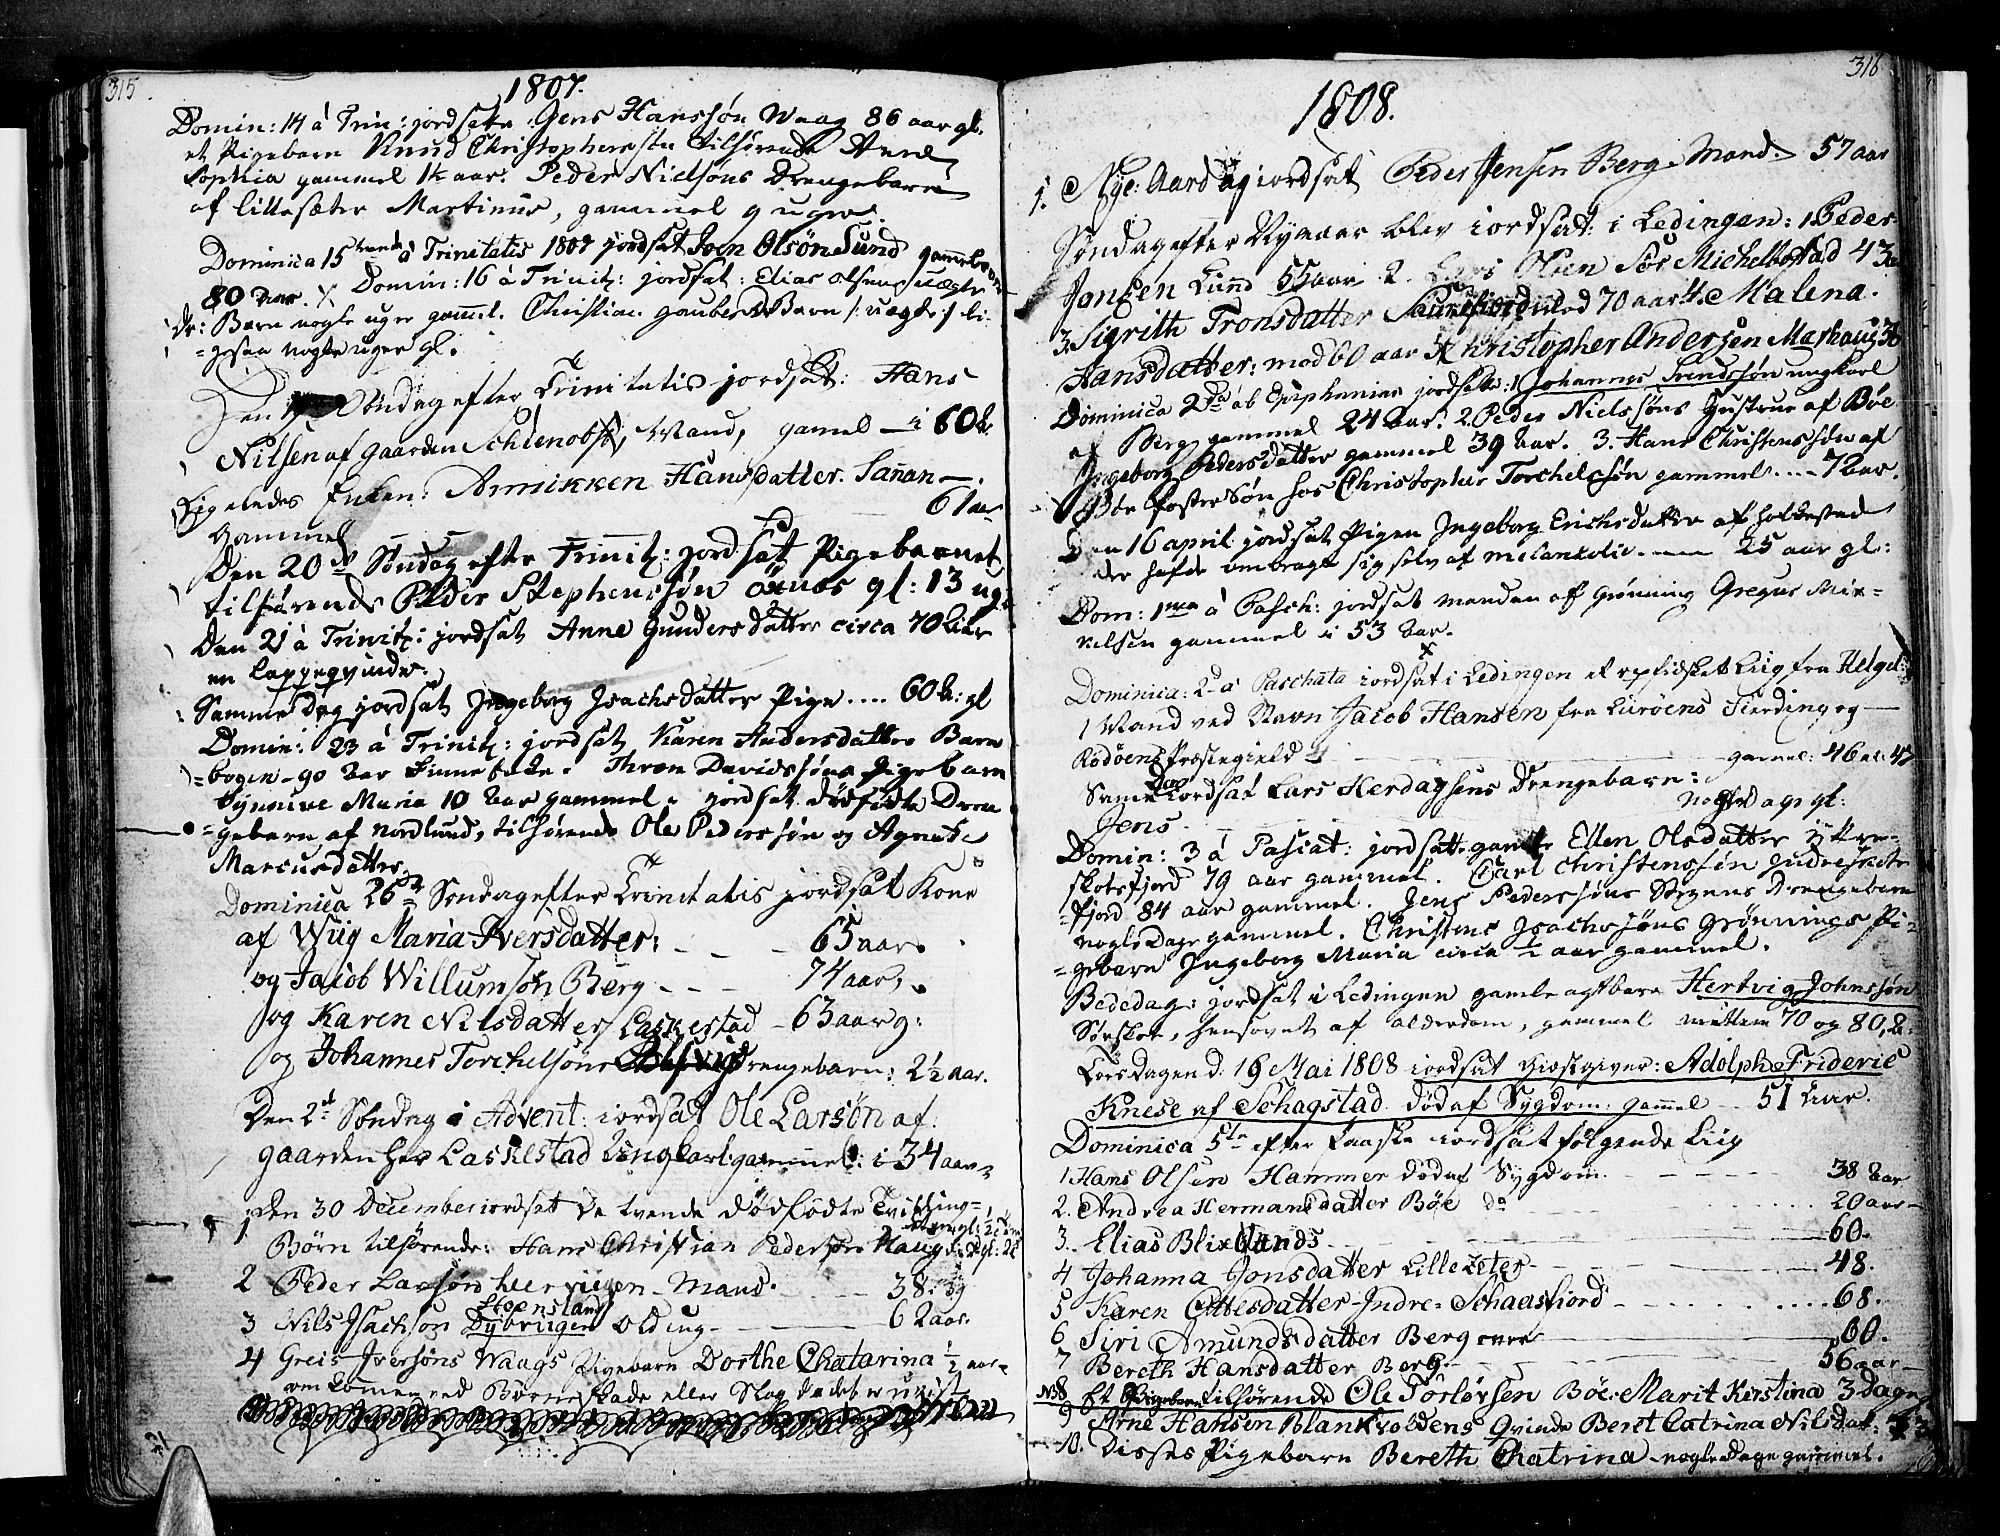 315
1807.
Domin: 14 à Trin: jordsatte Jens Hanssøn Waag 86 aar gl.
et Pigebarn Knud Christophersøn tilhørende Anne
Sophia gammel 1½ aar. Peder Nielsøns Drengebarn
af lillesæter Martinus, gammel 9 uger.
Dominica 15 à Trinitatis 1807 jordsat Joen Olsøn Sund gammel
80 aar. X Domin: 16 à Trinit: jordsat: Elias Olsens uægte
dr: Barn nogle uger gaml. Christian Barn /: uægte :/ li-
=gesaa nogle uger gl.
Den Søndag efter Trinitatis jordsat: Hans
Nilsen af gaarden Mand, gamel - i 60 a.
Ligeledes Enken: Annikken Hansdatter. Sanan -
gammel 61 aar
Den 20de Søndag efter Trinit: jordsatt Pigebarnet
tilhørende Peder Stephenssøn øxnæs gl: 13 ug:
Den 21 à Trinit: jordsat Anne Gundersdatter circa 70 aar
en Lappeqvinde.
Samme Dag jordsat Ingeborg Isachsdatter Pige .... 60 a: gl
Domin: 23 à Trinit: jordsat Karen Andersdatter Barn
=bogen - 90 aar . Thron Davidssøns Pigebarn
Synnive Maria 10 aar gammel. jordsat dødfødte Dren
=gebarn af Nordlund, tilhørende Ole Pederssøn og Agnete
Marcusdatter.
Dominica 26de Søndag efter Trinitatis jordsat Kone
af Wiig Maria Iversdatter: - - 65 aar.
og Jacob Willumsøn Berg - - - 74 aar,
og Karen Nilsdatter Laskestad - 63 aar g:
og Johannes Torchelsøns Drengebarn: 2½ aar.
Den 2de Søndag i Advent: iordsat Ole Larsøn af
gaarden Laskestad Ungkarl: gammel: i 34 aar
1 den 30 December iordsat De tvende dødfødte Tvilling=
Børn tilhørende: Hans Christian Pedersøn Haug
2 Peder Larsøn - Mand. 38.
3 Nils Isachsøn Steensland Olding - 62 aar.
4 Greis Iversøns Waags Pigebarn Dorthe Chatarina ½ aar
omkommen ved Børne skade eller Slag da det er uvist
316
1808.
1. Nye: Aardag iordsat Peder Jensen Berg Mand. 57 aar
Søndag efter Nyaar blev iordsat: i Ledingen: 1 Peder
Jonsen Lund 55 aar 2. Lars Olsen Sør Michelbostad 43
3. Sigrith Tronsdatter 70 aar 4. Malena
Hansdatter: mod 60 aar Christopher Andersen Marhaug 30
Dominica 2da ab Epiphanias jordsatte: 1 Johannes Svendssøn ungkarl
af Berg gammel 24 aar. 2. Peder Nielssøns Hustrue af Bøe
Ingeborg Pedersdatter gammel 39 aar. 3. Hans Christenssøn af
Bøe fostersøn hos Christopher Torchelssøn gammel .... 7 aar.
Den 16 april jordsat Pigen Ingeborg Erichsdatter af holkestad
der hafde ombragt sig selv af melankolie. 25 aar gl:
Dom: 1ma à Pasch: jordsat manden af Grønning Gregus Mik=
kelsen gammel i 53 aar.
Dominica: 2da à Paschata iordsat i Ledingen et Liig fra Helgel:
1 Mand ved Navn Jacob Hansen fra Lurøens Fierding og
Rødøens Præsegield gamel: 46 al: 47
Samme Dag iordsat Lars Herdagsens Drengebarn:
Jens Nogle dage gl:
Domin: 3 à Pascat: jordsatte gamle Ellen Olsdatter ÿtre=
skotsfjord 79 aar gammel. Carl Christenssøn Indreskots
=fjord 84 aar gammel. Jens Pederssøns Drengebarn
nogle Dage gammel. Christens Isachssøns Grønnings Pi=
=gebarn Ingeborg Maria circa ½ aar gammel.
Bededag: jordsat i Ledingen gamle agtbare Hertvig Johnssøn
Sørskot, hensovet af alderdom, gammel mellem 70 og 80 a:
Torsdagen d: 19 Mai 1808 iordsat Giestgiver: Adolph Frideric
Knese af Schagstad død af Sygdom: gammel 51 aar.
Dominica 5te efter Paaske iordsat følgende Liig
1 Hans Olsen Hammer død af Sygdom. 38 aar
2. Andrea Hermansdatter Bøe do 20 aar
3. Elias Blix 60.
4 Johanna Jonsdatter Lillezeter 48.
5 Karen Ottesdatter Indre= Schaasfiord 68.
6 Siri Amundsdatter Berg 60.
7 Bereth Hansdatter Berg. 56 aar
No 8 Et Pigebarn tilhørende Ole Torlersen Bøe: Marit Kirstina 3 dage
9 Arne Hansen Blankvoldens Qvinde Beret Catrina Nilsdat:
10. Disses Pigebarn Bereth Chatrina nogle dage gammel.